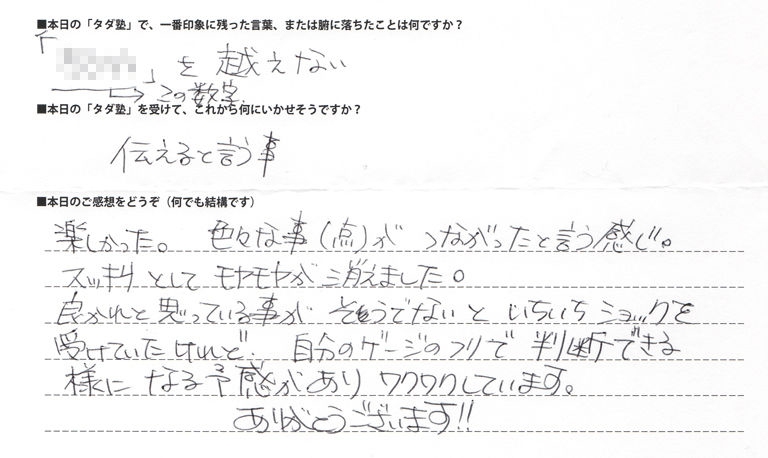 ■本日の「タダ塾」で、一番印象に残った言葉、または腑に落ちたことは何ですか？
「 」を越えない
→この数字
■本日の「タダ塾」を受けて、これから何にいかせそうですか？
伝えると言う事
■本日のご感想をどうぞ（何でも結構です）
楽しかった。 色々な事(点)が つながったと言う感じ。
スッキリとしてモヤモヤが消えました。
良かれと思っている事が そうでないと いちいちショックを
受けていたけれど、自分のゲージのフリで判断できる
様になる予感がありワクワクしています。
ありがとうございます!!